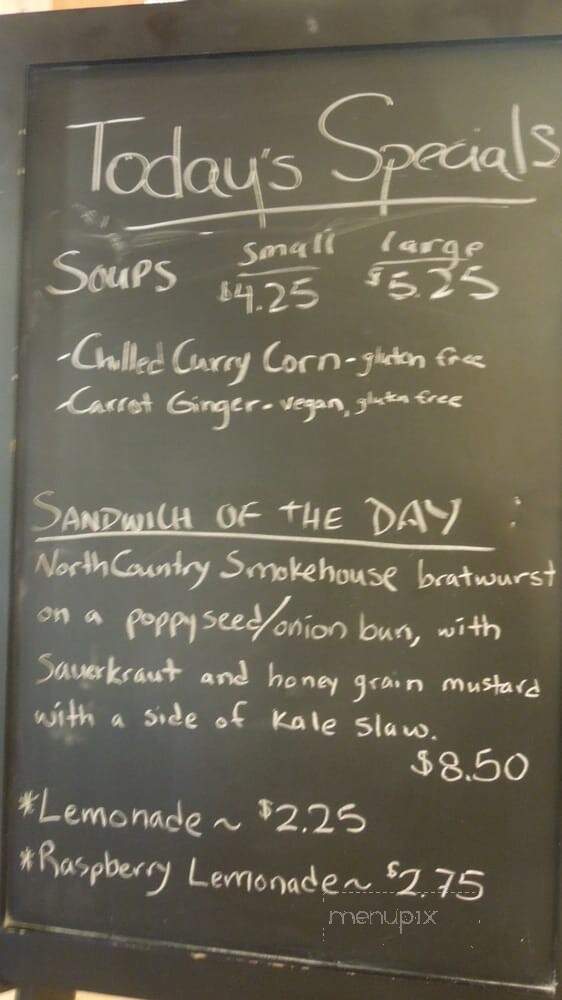 Today's Specials
Soups small large
$4.25 $5.25
-Chilled Curry Corn - gluten free
-Carrot Ginger - vegan, gluten free
SANDWICH OF THE DAY :
North Country Smokehouse bratwurst
on a poppyseed/onion bun, with
Sauerkraut and honey grain mustard
with a side of Kale Slaw.
$8.50
*Lemonade ~ $2.25
*Raspberry Lemonade ~ $2.75
menupix